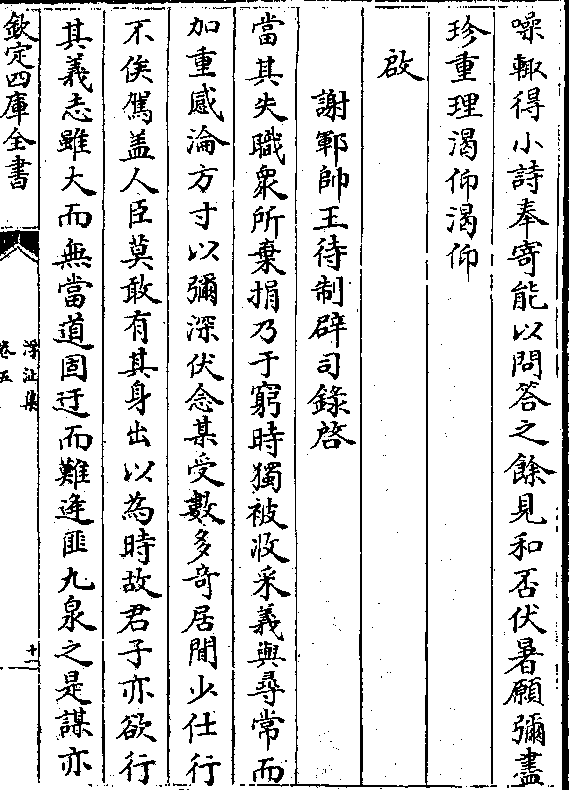 噪輙得小詩奉寄能以問答之餘見和否伏暑願彌盡
珍重理渴仰渴仰
啟
謝鄆帥王待制辟司錄啓
當其失職衆所棄捐乃于窮時獨被收采義與尋常而
加重感淪方寸以彌深伏念某受數多奇居閒少仕行
不俟駕盖人臣莫敢有其身出以為時故君子亦欲行
其義志雖大而無當道固迂而難逢匪九泉之是謀亦
欽定四庫全書
浮沚集
卷五
十二